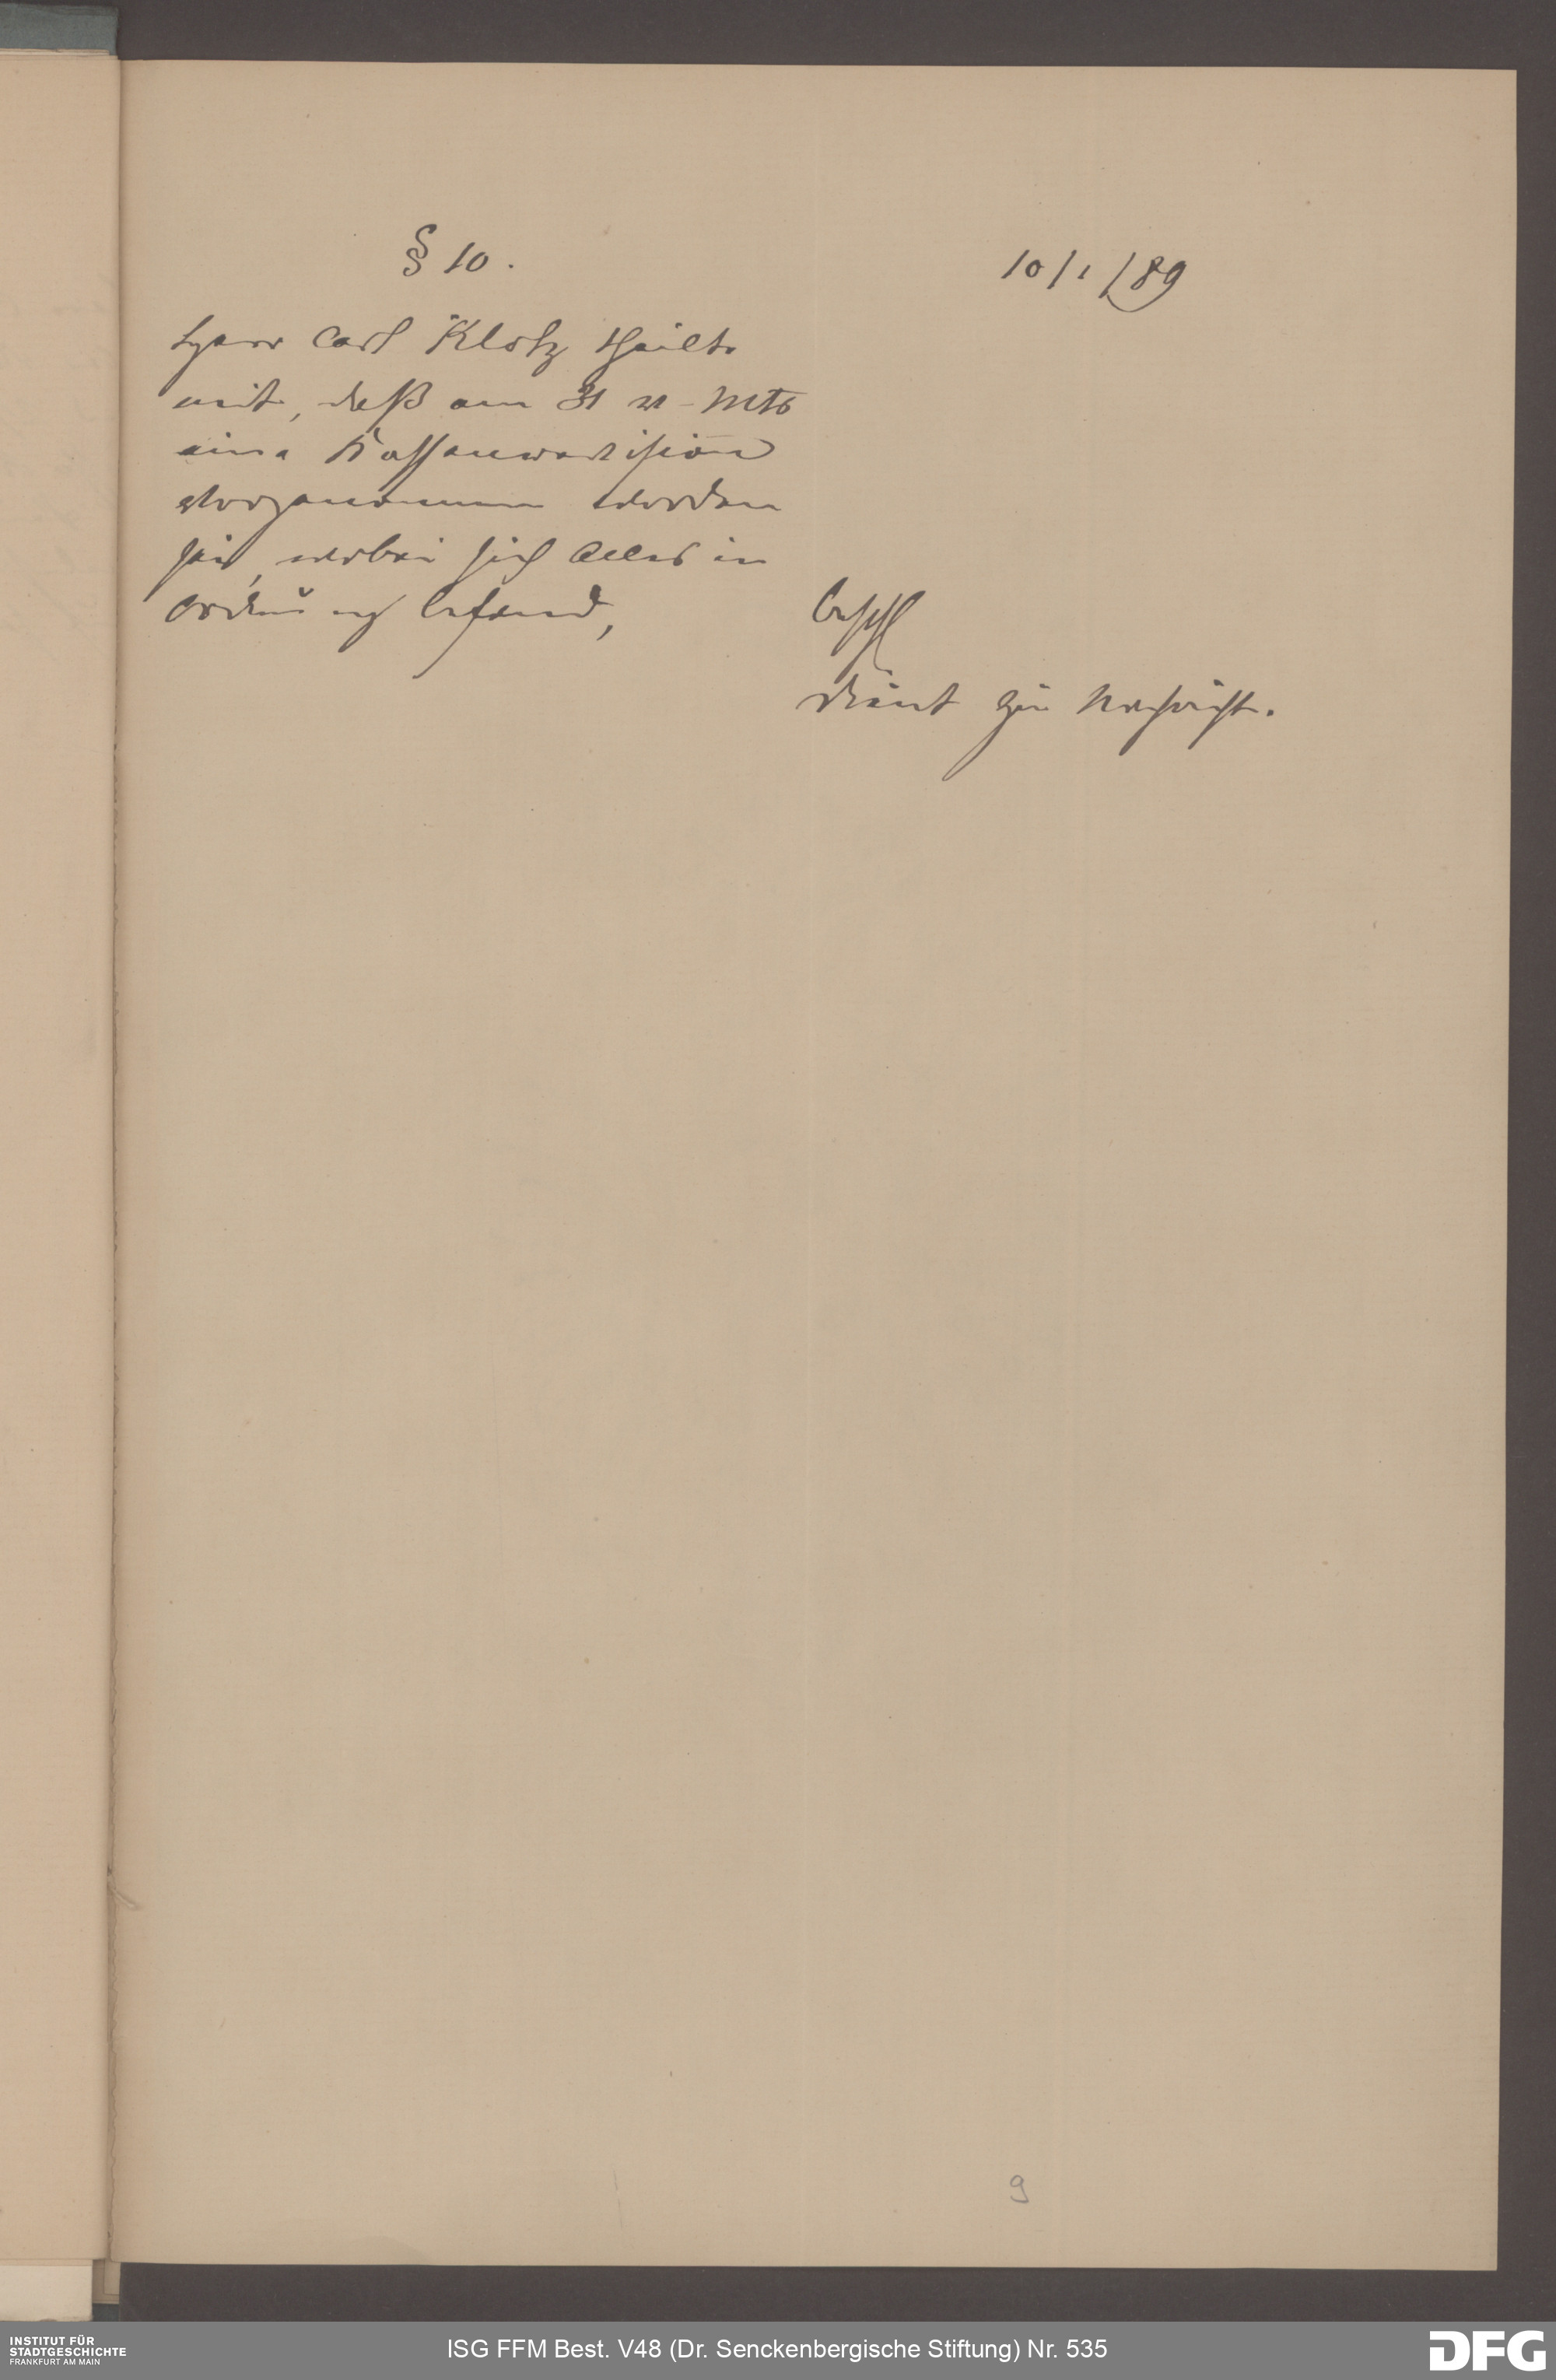 § 10.
10/1/89
Herr Carl Klotz theilte
mit, daß am 31 v. Mts
eine Kassenrevision
vorgenommen worden
sei, wobei sich Alles in
Ordnung befand,
Beschl
dient zur Nachricht.
9
INSTITUT FÜR
STADTGESCHICHTE
FRANKFURT AM MAIN
ISG FFM Best. V48 (Dr. Senckenbergische Stiftung) Nr. 535
DFG